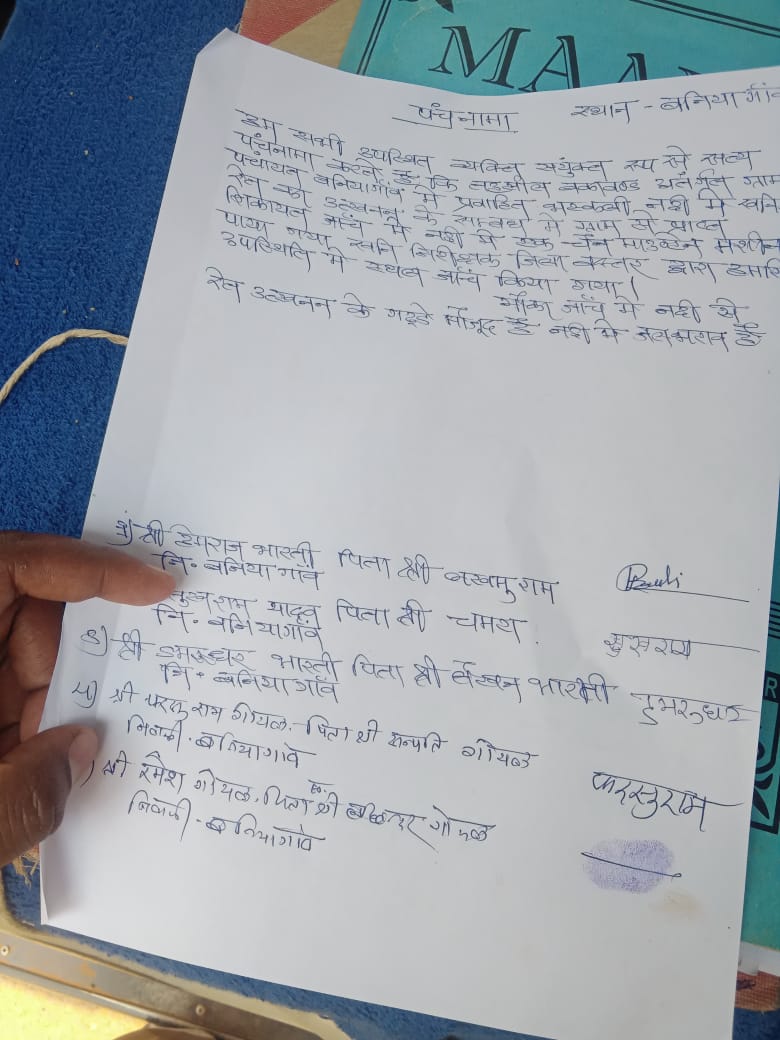 MAA
पंचनामा स्थान - बनियागाँव
हम सभी उपस्थित व्यक्ति संयुक्त रूप से सत्य
पंचनामा करते हैं कि तहसील बकावण्ड अंतर्गत ग्राम
पंचायत बनियागाँव में प्रवाहित भास्कली नदी में खनि
रेत का उत्खनन के सम्बंध में ग्राम से प्राप्त
शिकायत जाँच में नदी में एक चैन माउण्टेन मशीन
पाया गया खनि निरीक्षक जिला बस्तर द्वारा हमारी
उपस्थिति में स्थल जाँच किया गया।
मौका जाँच में नदी से
रेत उत्खनन के गड्डे मौजूद हैं नदी में जलभराव हैं
श्री हेमराज भारती पिता श्री लखमु राम
नि. बनियागाँव
सुखराम यादव पिता श्री चमरा. सुखराम
नि. बनियागाँव
3) श्री डमरूधर भारती पिता श्री लैखन भारती डुमरूधर
नि. बनियागाँव
4) श्री फरसु राम गोयल. पिता श्री सम्पति गोयल फरसुराम
निवासी. बनियागांव
) श्री रमेश गोयल. पिता श्री गोयल
निवासी. बनियागांव
R